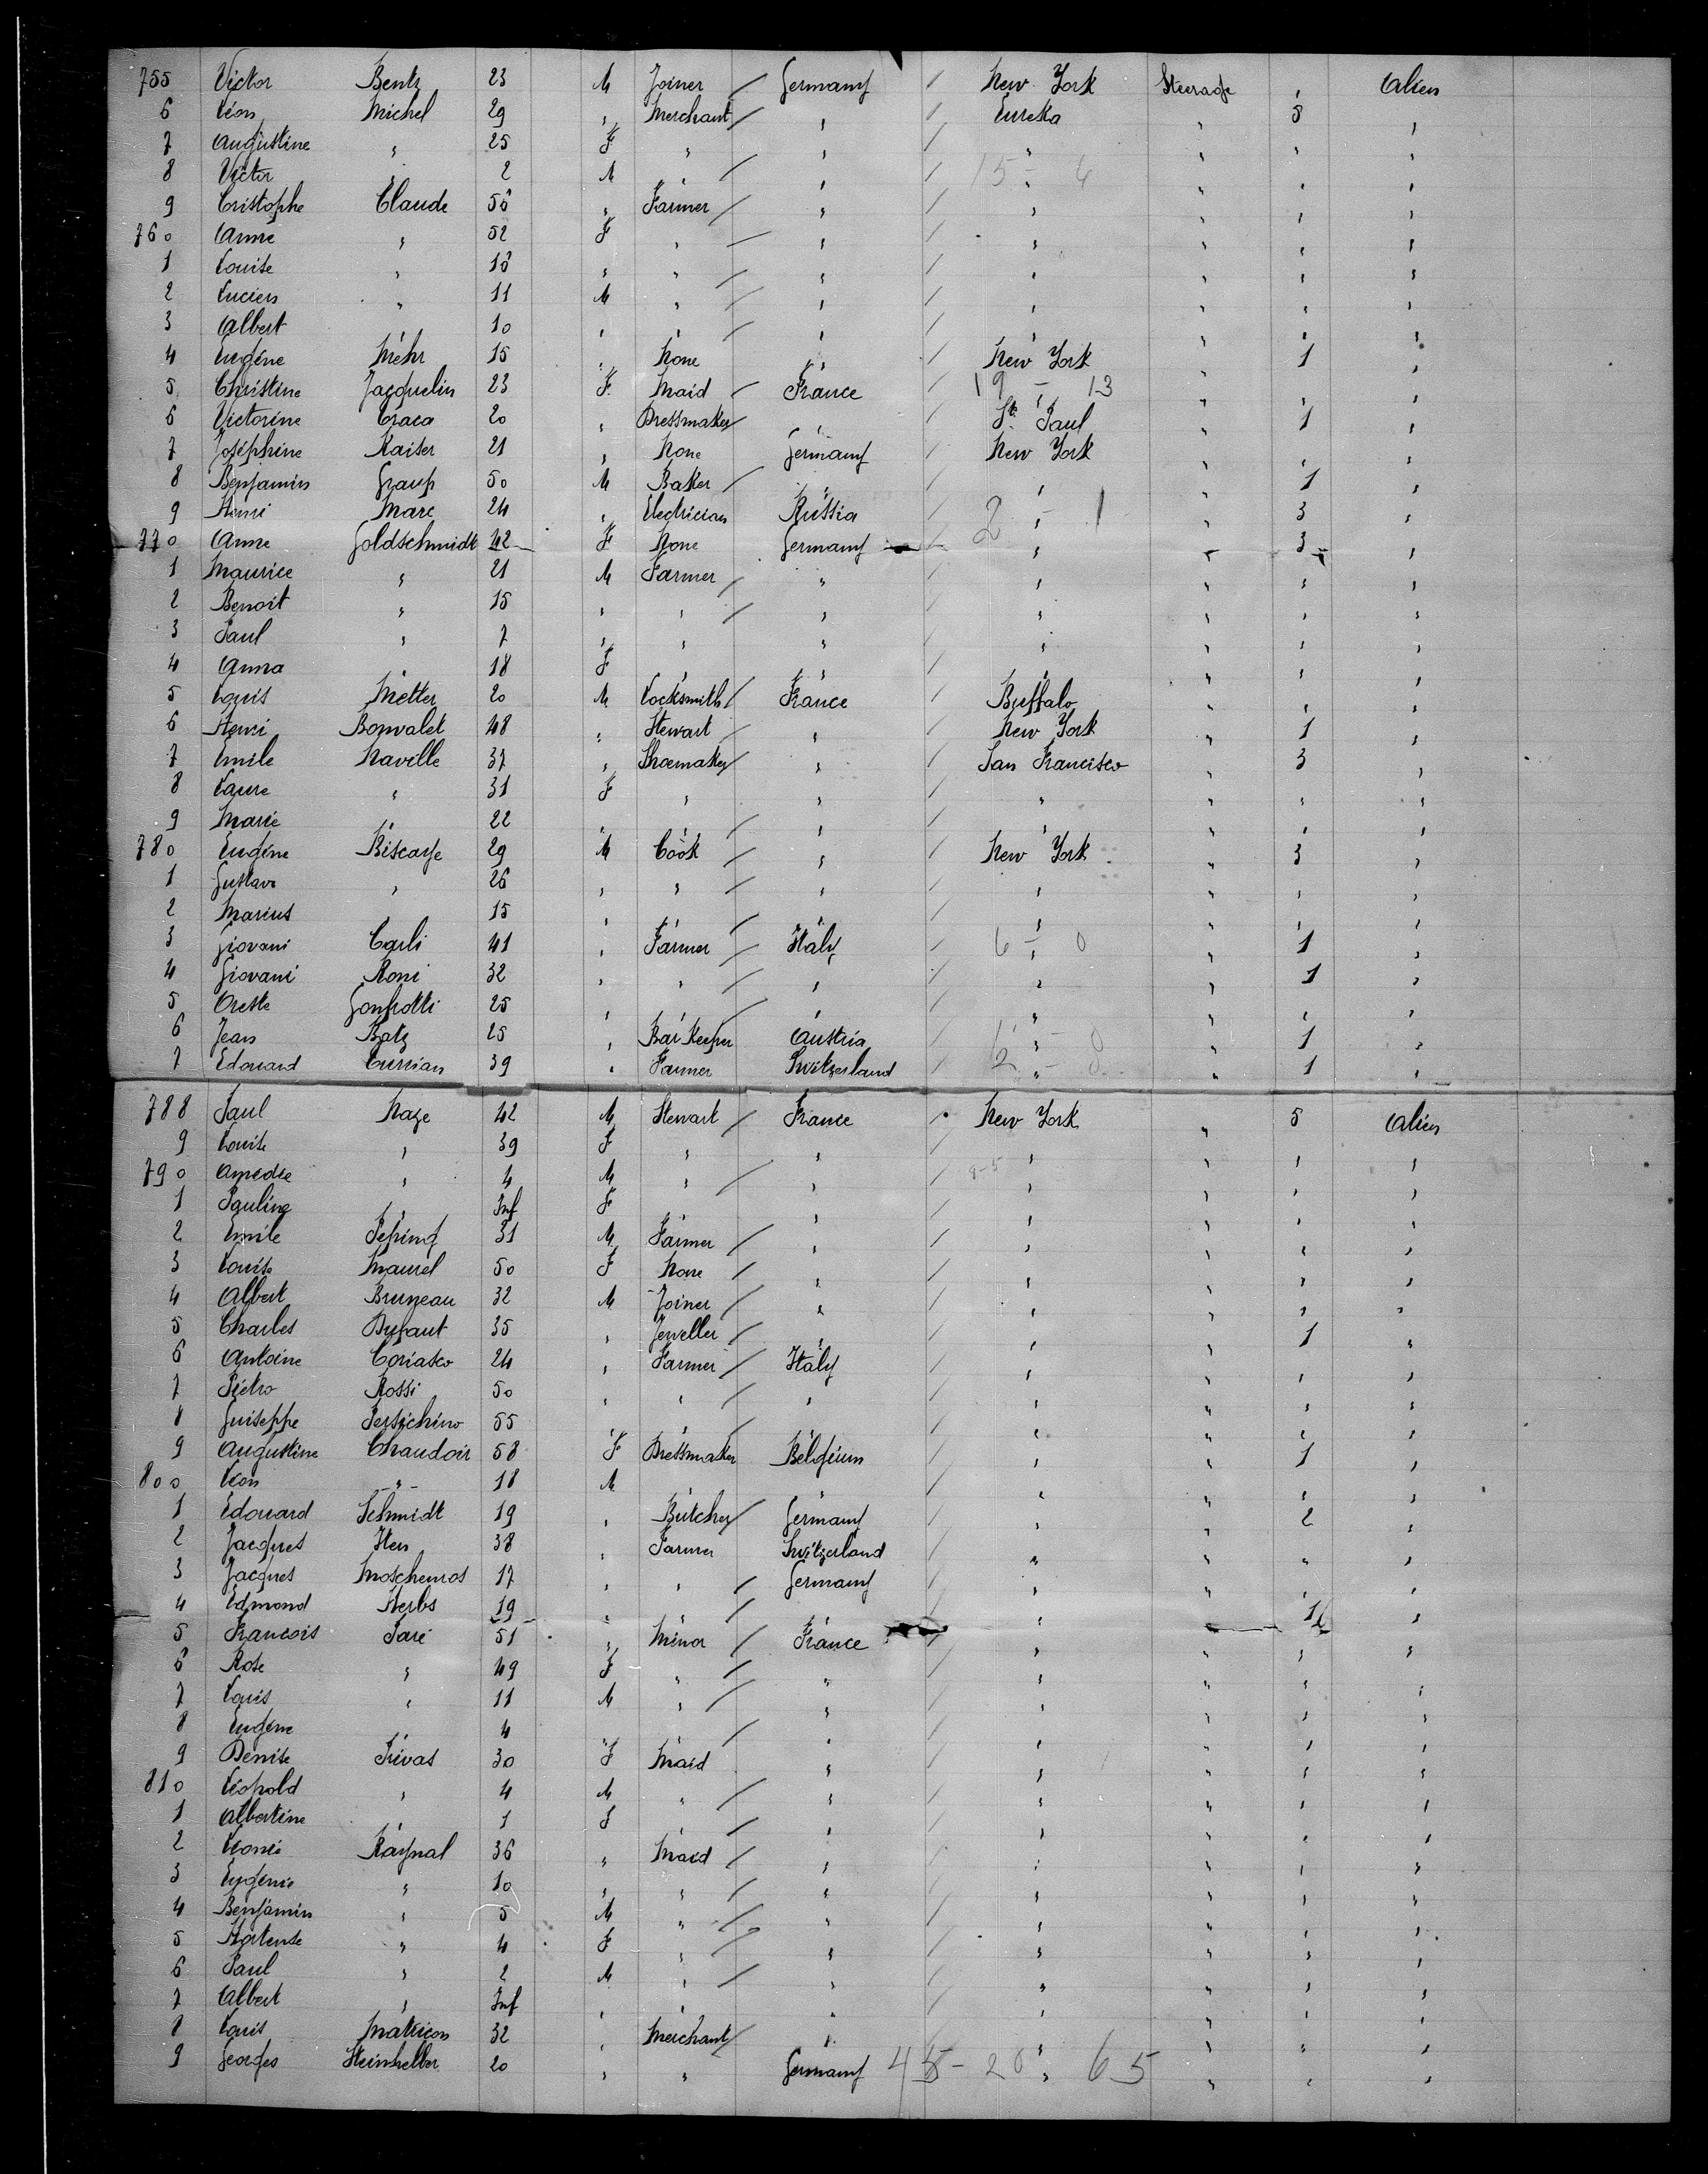 755 Victor Bentz 23 M Joiner / Germany / New York Steerage , Alien
6 Léon Michel 29 " Merchant / " / Eureka " 5 "
7 Augustine " 25 F " / " / " " " "
8 Victor " 2 M " / " / 15 - 4 " " " "
9 Cristophe Claude 56 " Farmer / " / " " " "
760 Anne " 52 F " / " / " " " "
1 Louise " 16 " " / " / " " " "
2 Lucien " 11 M " / " / " " " "
3 Albert " 10 " " / " / " " " "
4 Eugène Mehr 15 " None " / New York " 1 "
5 Christine Jacquelin 23 F Maid / France / 19 - 13 " " " "
6 Victorine Craca 20 " Dressmaker / " / St Paul " 1 "
7 Joséphine Kaiser 21 " None Germany / New York " " "
8 Benjamin 50 M Baker / " / " " 1 "
9 Henri Marc 24 " Electrician Russia / 2 - 1 " " 3 "
770 Anne Goldschmidt 42 F None Germany / " " 3 "
1 Maurice " 21 M Farmer / " / " " " "
2 Benoit " 15 " " / " / " " " "
3 Paul " 7 " " " / " " " "
4 Anna " 18 F " " / " " " "
5 Louis Metter 20 M Locksmith / France / Buffalo " " "
6 Henri Bonvalet 48 " Stewart / " / New York " 1 "
7 Emile Naville 37 " Shoemaker / " / San Francisco " 3 "
8 Laure " 31 F " " / " " " "
9 Marie " 22 " " / " / " " " "
780 Eugène Biscaye 29 M Cook / " / New York " 3 "
1 Gustave " 26 " " / " / " " " "
2 Marius " 15 " " / " / " " " "
3 Giovani Carli 41 " Farmer / Italy / 6 - 0 " " 1 "
4 Giovani Roni 32 " " / " / " " 1 "
5 Oreste 25 " " / " / " " " "
6 Jean Batz 25 " Bar Keeper Austria / " " 1 "
7 Edouard 39 " Farmer Switzerland / 2 - 0 " " 1 "
788 Paul Naze 42 M Stewart / France / New York " 5 Alien
9 Louise " 39 F " / " / " " " "
790 Amédée " 4 M " / " / " " " "
1 Pauline " Inf F " " / " " " "
2 Emile 31 M Farmer / " / " " " "
3 Louise Maurel 50 F None / " / " " " "
4 Albert Bruneau 32 M Joiner / " / " " " "
5 Charles Dufaut 35 " Jeweller / " / " " 1 "
6 Antoine Coriasco 24 " Farmer / Italy / " " " "
7 Piétro Rossi 50 " " / " / " " " "
8 Guiseppe Persichino 55 " " / " / " " " "
9 Augustine Chaudoir 58 F Dressmaker Belgium / " " 1 "
800 Léon " 18 M " " / " " " "
1 Edouard Schmidt 19 " Butcher / Germany / " " 2 "
2 Jacques Iten 38 " Farmer Switzerland / " " " "
3 Jacques Moschenros 17 " " / Germany / " " " "
4 Edmond Herbs 19 " " / " / " " "
5 Francois Paré 51 " Minor / France / " " " "
6 Rose " 49 F " / " / " " " "
7 Louis " 11 M " / " / " " " "
8 Eugène " 4 " " / " / " " " "
9 Denise Privas 30 F Maid " / " " " "
810 Léopold " 4 M " / " / " " " "
1 Albertine " 1 F " / " / " " " "
2 Léonie Raynal 36 " Maid / " / " " " "
3 Eugénie " 10 " " / " / " " " "
4 Benjamin " 5 M " / " / " " " "
5 Hortense " 4 F " / " / " " " "
6 Paul " 2 M " / " / " " " "
7 Albert " Inf " " " / " " " "
8 Louis 32 " Merchant / " / " " " "
9 Georges Steinhelber 20 " " Germany 45 - 20 " 65 " " "